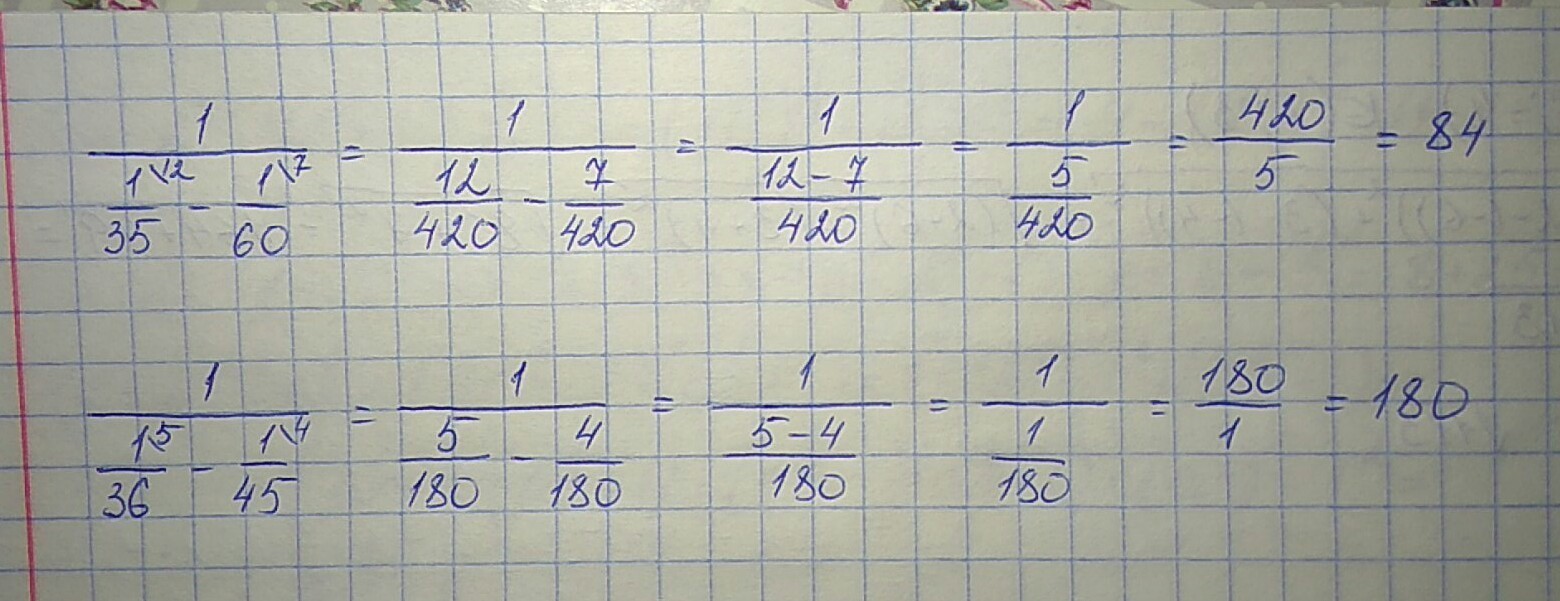 1/(1\12/35 - 1\7/60) = 1/(12/420 - 7/420) = 1/((12-7)/420) = 1/(5/420) = 420/5 = 84
1/(1\5/36 - 1\4/45) = 1/(5/180 - 4/180) = 1/((5-4)/180) = 1/(1/180) = 180/1 = 180